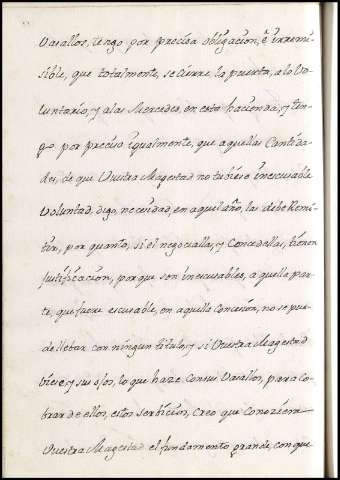 Vasallos, tengo por precisa obligacion, è irremi-
sible, que totalmente, se cierre la puerta, a lo Vo-
luntario, y a las Mercedes, en esta hacienda, y ten-
go por preciso igualmente, que aquellas Cantida-
des, de que Vuestra Magestad no tubiese inescusable
Voluntad, digo, necesidad, en aquel año, las debe Remi-
tir, por quanto, si el negociallas, y Concedellas, tienen
Justificacion, porque son inescusables, aquella par-
te, que fuere escusable, en aquella Concesion, no se pue-
de llebar con ningun titulo, y si Vuestra Magestad
biese, y sus ojos, lo que haze con sus Vasallos, para co-
brar de ellos, estos serbicios, Creo que Conoziera
Vuestra Magestad el fundamento grande, con que